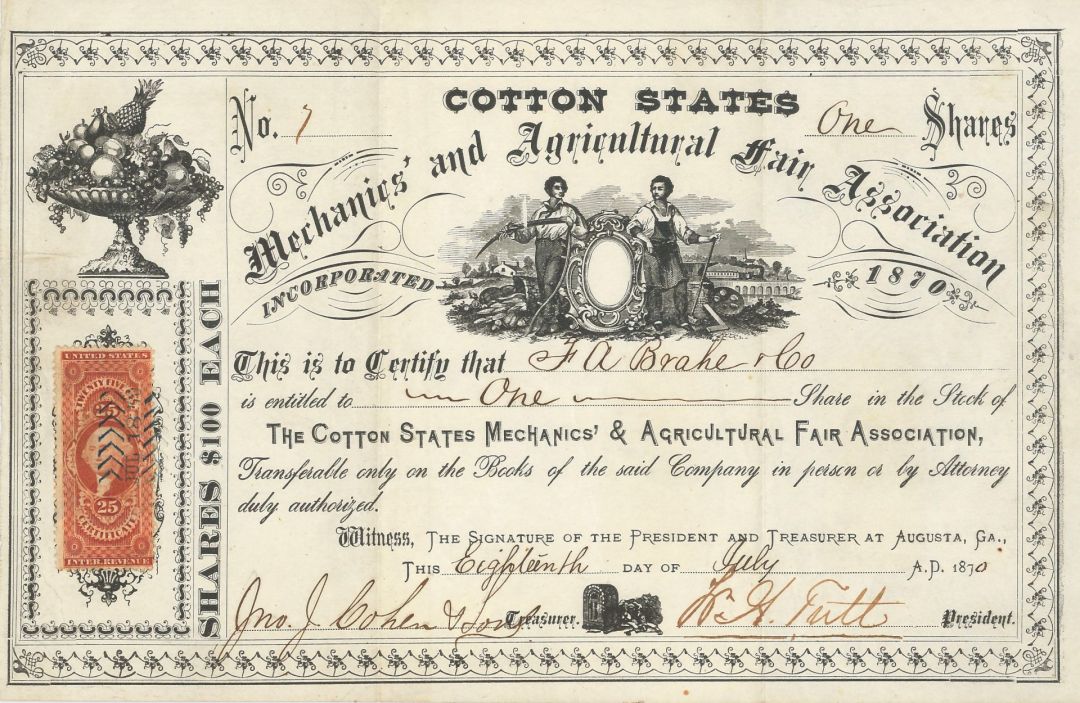 COTTON STATES
No. 7
One Shares
Mechanics' and Agricultural Fair Association
INCORPORATED
1870
This is to Certify that F A Brahe & Co
is entitled to One Share in the Stock of
THE COTTON STATES MECHANICS' & AGRICULTURAL FAIR ASSOCIATION,
Transferable only on the Books of the said Company in person or by Attorney
duly authorized.
Witness, THE SIGNATURE OF THE PRESIDENT AND TREASURER AT AUGUSTA, GA.,
THIS Eighteenth DAY OF July A.D. 1870
Jno. J. Cohen & Sons Treasurer.
Wm. H. Tutt President.
SHARES $100 EACH
UNITED STATES
TWENTY FIVE
25
CERTIFICATE
INTER. REVENUE